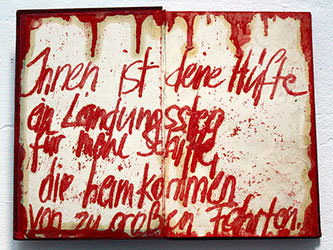 Ihnen ist deine Hüfte
ein Landungssteg
für meine Schiffe,
die heimkommen
von zu großen Fahrten.